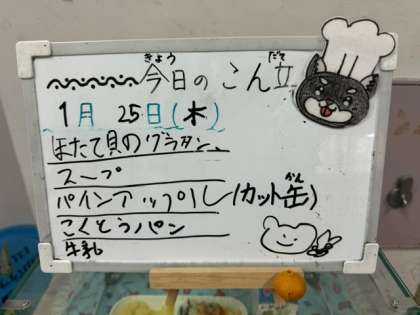 今日のこん立
きょう だて
1月 25日(木)
ほたて貝のグラタン
スープ
パインアップル(カット缶)
かん
こくとうパン
牛乳